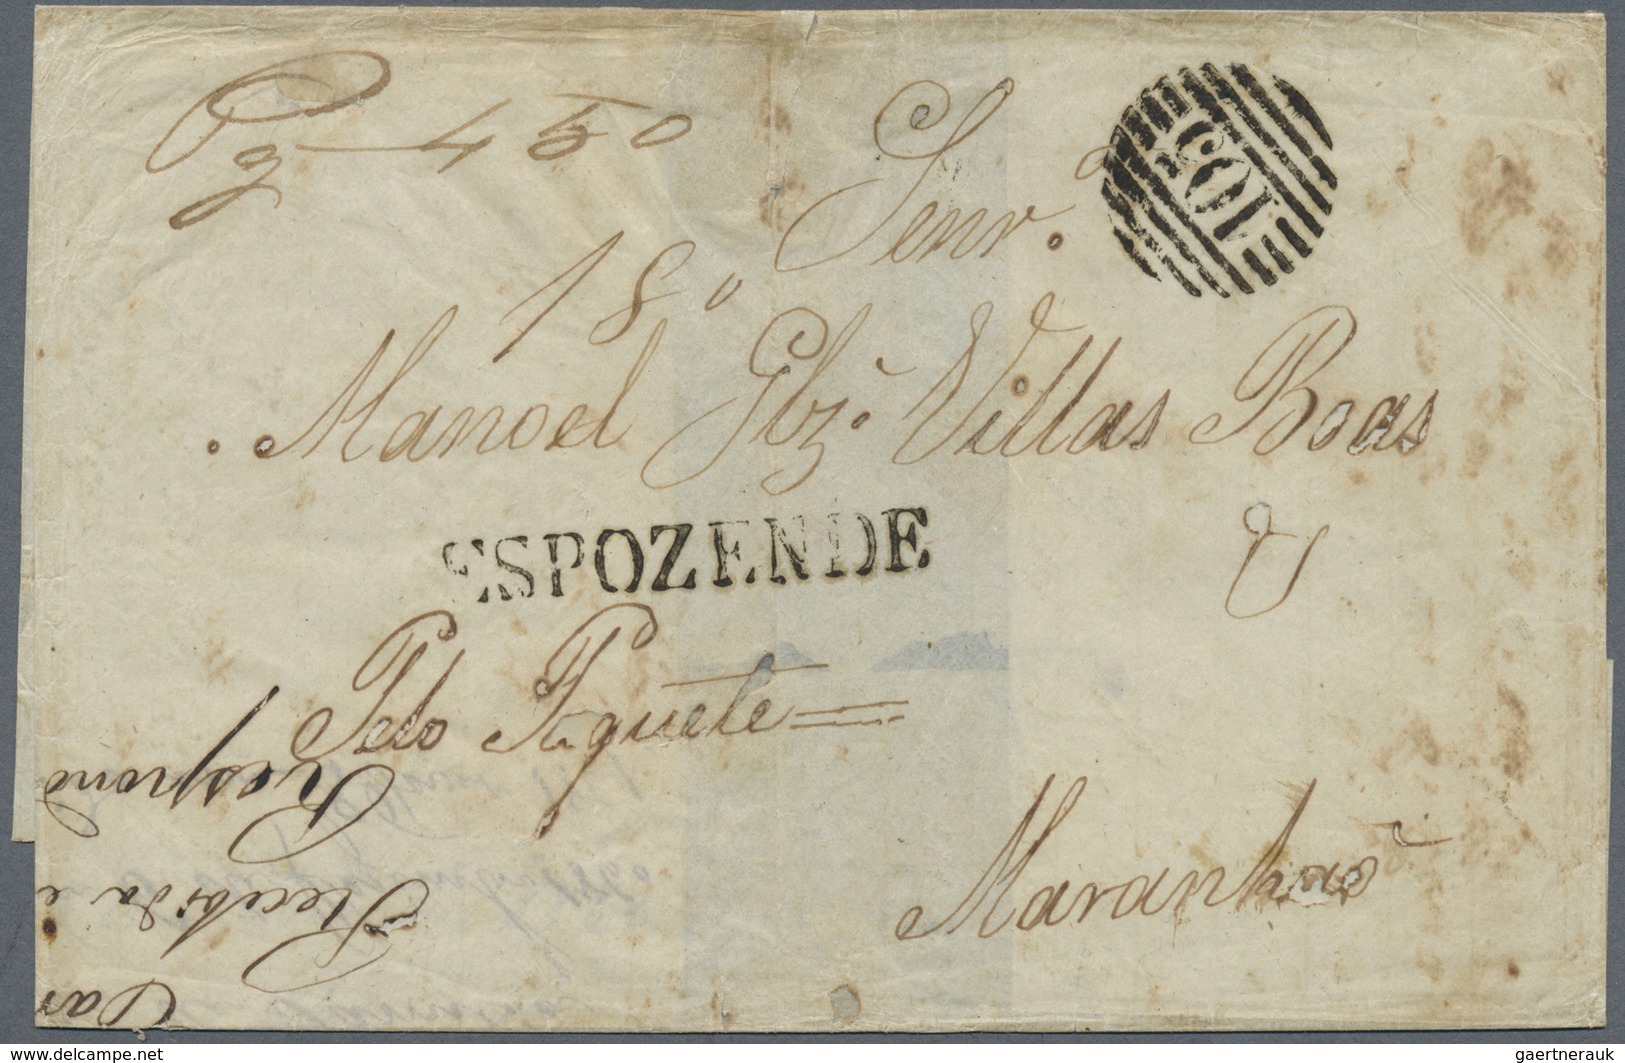 Pg 450
Senr.
180
Manoel Glz. Villas Boas
ESPOZENDE
Pelo Paquete
Maranhão
103
Respond
Recebida e
www.delcampe.net
gaertnerauk